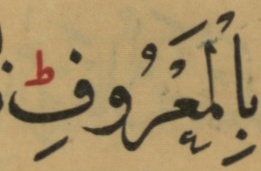 بِالْمَعْرُوفِ ط